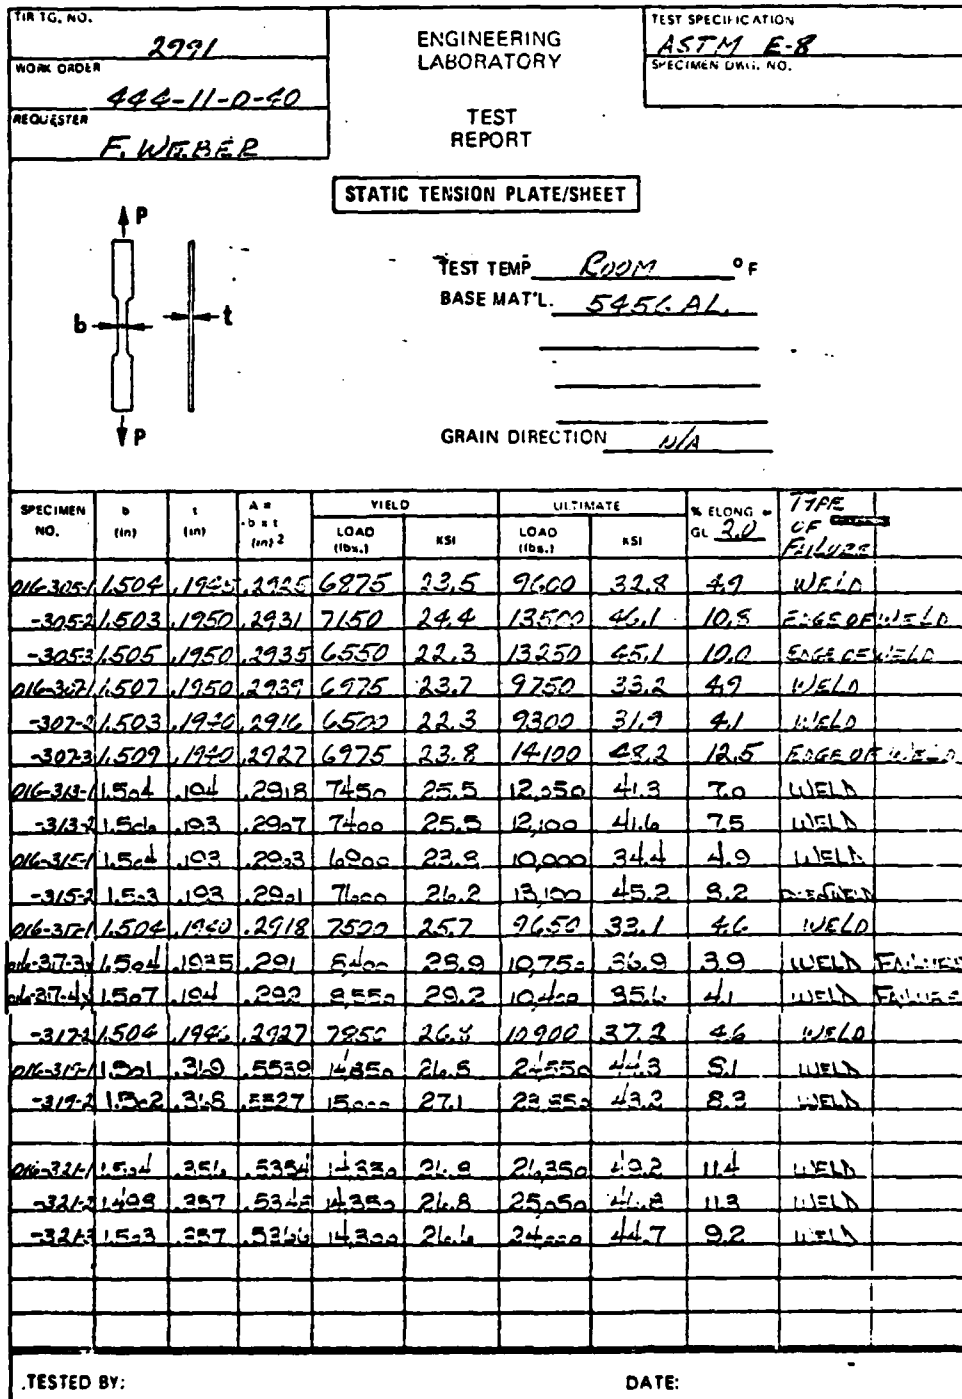 TIR TG. NO.
2991
WORK ORDER
444-11-0-40
REQUESTER
F. WEBER
ENGINEERING
LABORATORY
TEST
REPORT
TEST SPECIFICATION
ASTM E-8
SPECIMEN DWG. NO.
STATIC TENSION PLATE/SHEET
P
b t
P
TEST TEMP ROOM °F
BASE MAT'L. 5456 AL.
GRAIN DIRECTION N/A
SPECIMEN NO. b (in) t (in) A = b x t (in)2 YIELD LOAD (lbs.) KSI ULTIMATE LOAD (lbs.) KSI % ELONG = GL 2.0 TYPE OF FAILURE
016-305-1 1.504 .1945 .2925 6875 23.5 9600 32.8 4.9 WELD
-305-2 1.503 .1950 .2931 7150 24.4 13500 46.1 10.8 EDGE OF WELD
-305-3 1.505 .1950 .2935 6550 22.3 13250 45.1 10.0 EDGE OF WELD
016-307-1 1.507 .1950 .2939 6975 23.7 9750 33.2 4.9 WELD
-307-2 1.503 .1940 .2916 6500 22.3 9300 31.9 4.1 WELD
-307-3 1.509 .1940 .2927 6975 23.8 14100 48.2 12.5 EDGE OF WELD
016-313-1 1.504 .194 .2918 7450 25.5 12,050 41.3 7.0 WELD
-313-2 1.506 .193 .2907 7400 25.5 12,100 41.6 7.5 WELD
016-315-1 1.504 .193 .2903 6900 23.8 10,000 34.4 4.9 WELD
-315-2 1.503 .193 .2901 7600 26.2 13,100 45.2 8.2
016-317-1 1.504 .1940 .2918 7500 25.7 9650 33.1 4.6 WELD
1.504 .1935 .291 8400 28.9 10,750 36.9 3.9 WELD FAILURE
1.507 .194 .292 8,550 29.2 10,400 35.6 4.1 WELD FAILURE
-317-2 1.504 .1946 .2927 7850 26.8 10900 37.2 4.6 WELD
016-319-1 1.501 .369 .5539 14,850 26.8 24550 44.3 8.1 WELD
-319-2 1.502 .368 .5527 15,000 27.1 23,850 43.2 8.3 WELD
016-321-1 1.504 .356 .5354 26.8 26,350 49.2 11.4 WELD
-321-2 1.498 .357 .5348 14,350 26.8 25,050 46.8 11.3 WELD
-321-3 1.503 .357 .5366 14,300 26.6 24,000 44.7 9.2 WELD
TESTED BY: DATE: